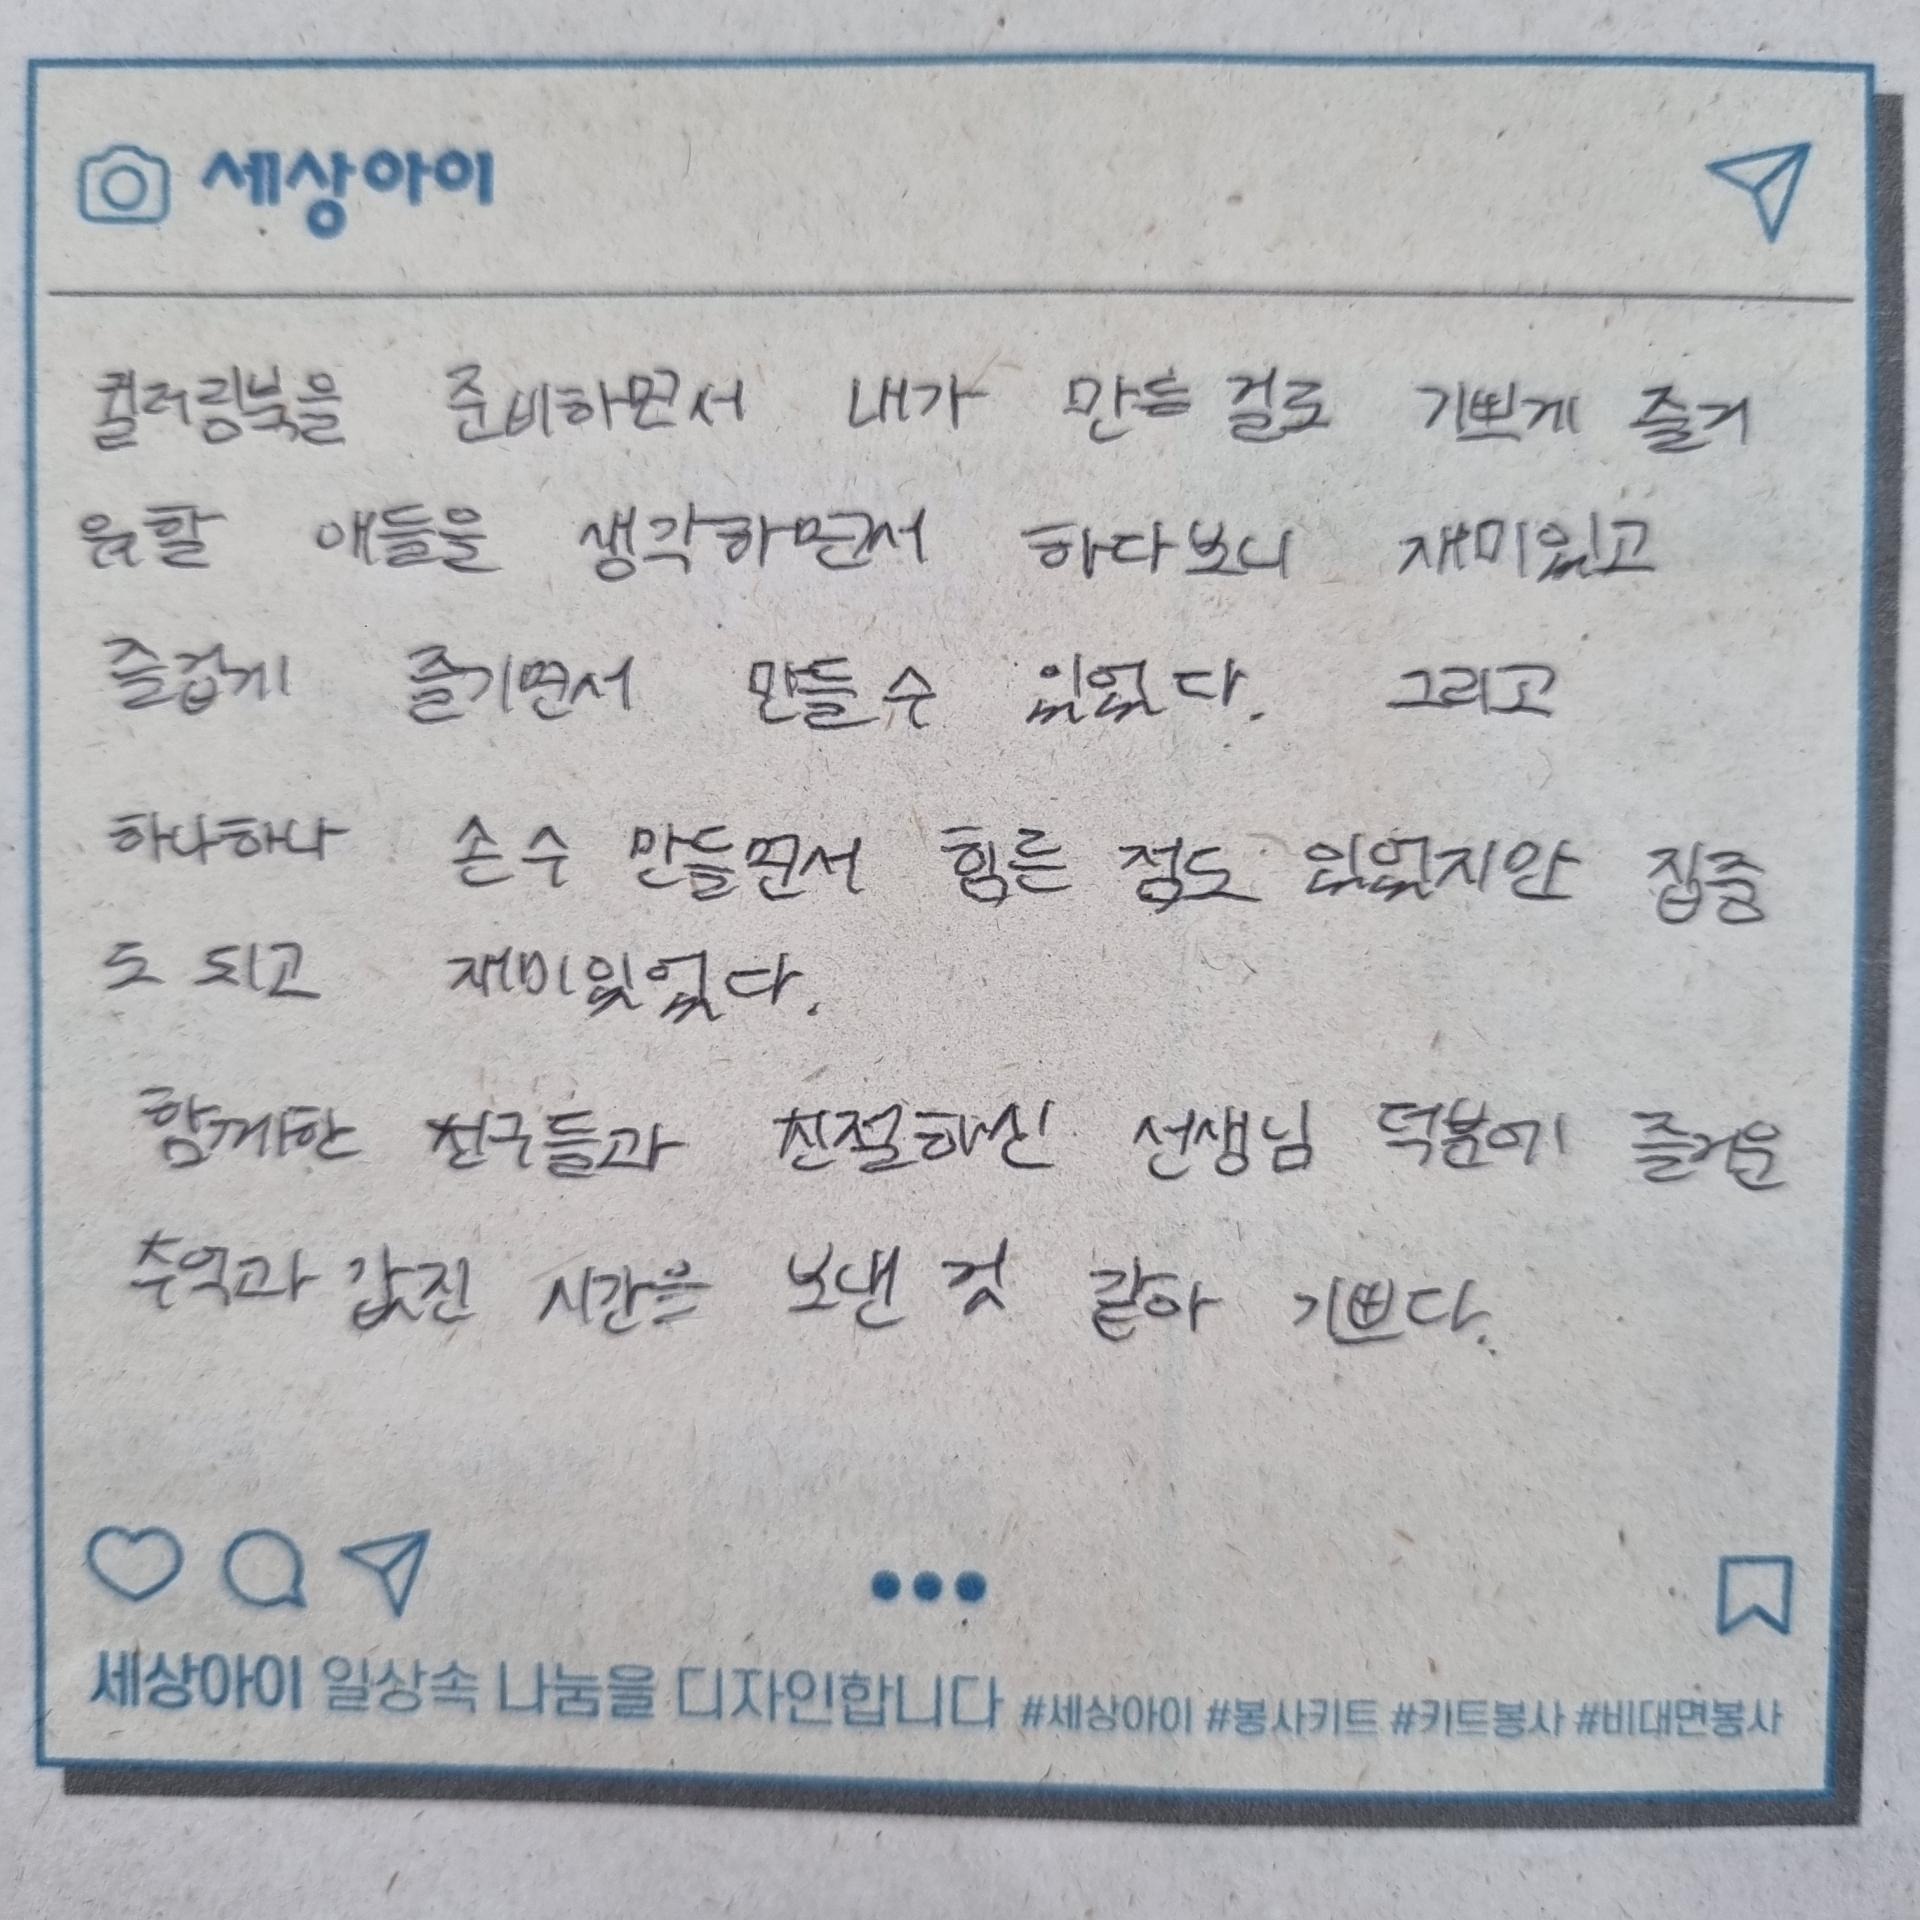 세상아이
컬러링북을 준비하면서 내가 만든 걸로 기쁘게 즐거
워할 애들을 생각하면서 하다보니 재미있고
즐겁게 즐기면서 만들 수 있었다. 그리고
하나하나 손수 만들면서 힘든 점도 있었지만 집중
도 되고 재미있었다.
함께한 친구들과 친절하신 선생님 덕분에 즐거운
추억과 값진 시간을 보낸 것 같아 기쁘다.
세상아이 일상속 나눔을 디자인합니다 #세상아이 #봉사키트 #키트봉사 #비대면봉사